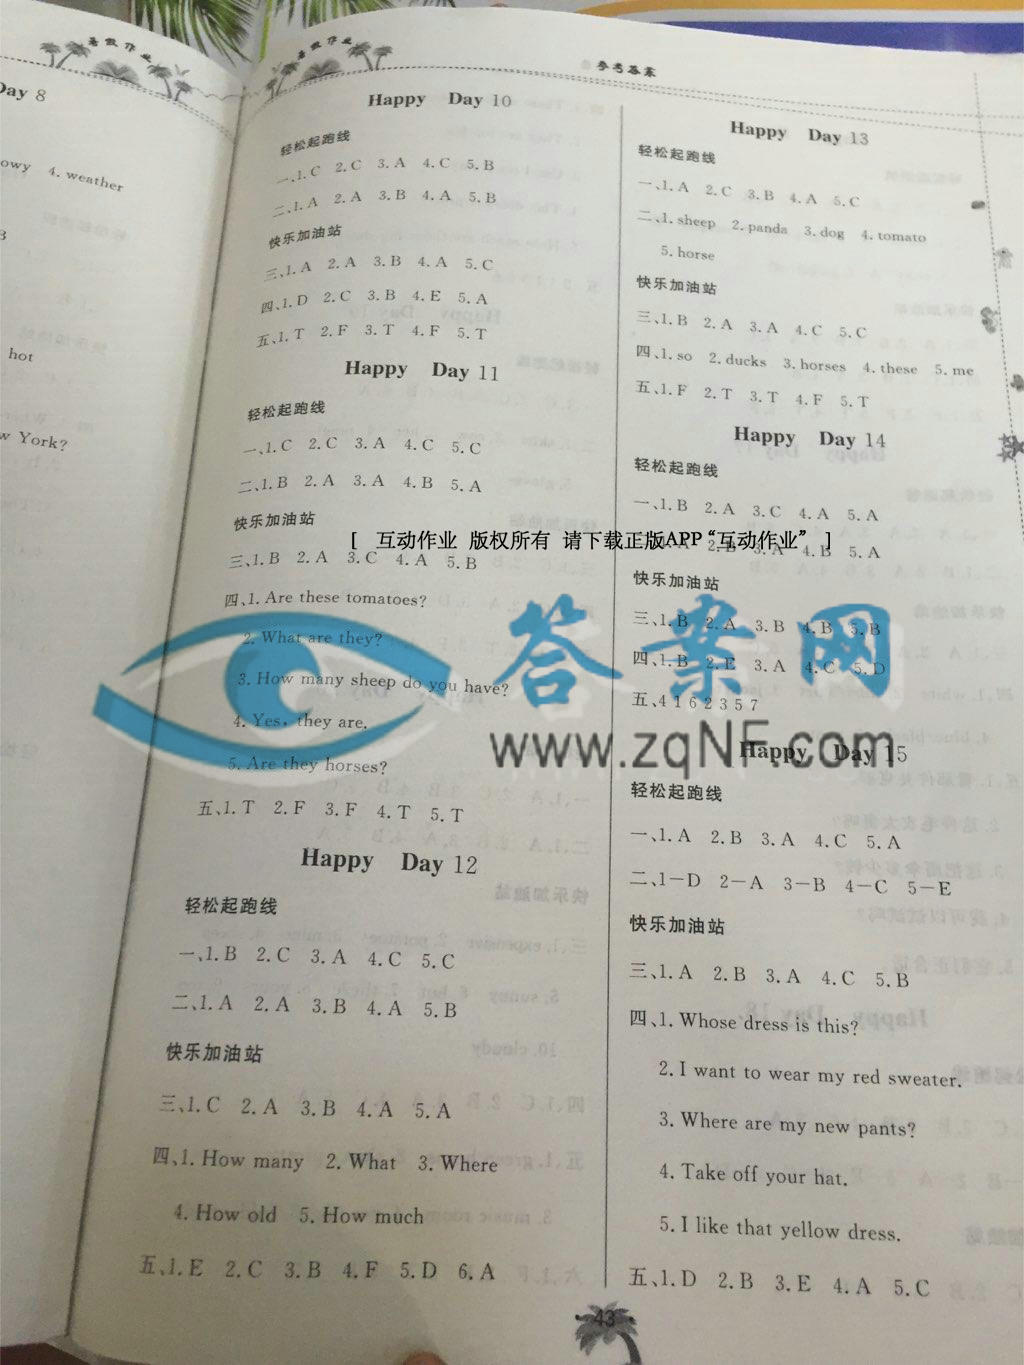 Day 8
owy 4. weather
3
hot
w York?
暑假作业
暑假作业
参考答案
Happy Day 10
轻松起跑线
一、1. C 2. C 3. A 4. C 5. B
二、1. A 2. A 3. B 4. A 5. B
快乐加油站
三、1. A 2. A 3. B 4. A 5. C
四、1. D 2. C 3. B 4. E 5. A
五、1. T 2. F 3. T 4. F 5. T
Happy Day 11
轻松起跑线
一、1. C 2. C 3. A 4. C 5. C
二、1. B 2. A 3. A 4. B 5. A
快乐加油站
三、1. B 2. A 3. C 4. A 5. B
四、1. Are these tomatoes?
2. What are they?
3. How many sheep do you have?
4. Yes, they are.
5. Are they horses?
五、1. T 2. F 3. F 4. T 5. T
Happy Day 12
轻松起跑线
一、1. B 2. C 3. A 4. C 5. C
二、1. A 2. A 3. B 4. A 5. B
快乐加油站
三、1. C 2. A 3. B 4. A 5. A
四、1. How many 2. What 3. Where
4. How old 5. How much
五、1. E 2. C 3. B 4. F 5. D 6. A
Happy Day 13
轻松起跑线
一、1. A 2. C 3. B 4. A 5. C
二、1. sheep 2. panda 3. dog 4. tomato
5. horse
快乐加油站
三、1. B 2. A 3. A 4. C 5. C
四、1. so 2. ducks 3. horses 4. these 5. me
五、1. F 2. T 3. T 4. F 5. T
Happy Day 14
轻松起跑线
一、1. B 2. A 3. C 4. A 5. A
[ 互动作业 版权所有 请下载正版APP“互动作业” ]
1. A 2. B 3. A 4. B 5. A
快乐加油站
三、1. B 2. A 3. B 4. B 5. B
四、1. B 2. E 3. A 4. C 5. D
五、4 1 6 2 3 5 7
答案网
www.zqNF.com
Happy Day 15
轻松起跑线
一、1. A 2. B 3. A 4. C 5. A
二、1－D 2－A 3－B 4－C 5－E
快乐加油站
三、1. A 2. B 3. A 4. C 5. B
四、1. Whose dress is this?
2. I want to wear my red sweater.
3. Where are my new pants?
4. Take off your hat.
5. I like that yellow dress.
五、1. D 2. B 3. E 4. A 5. C
43